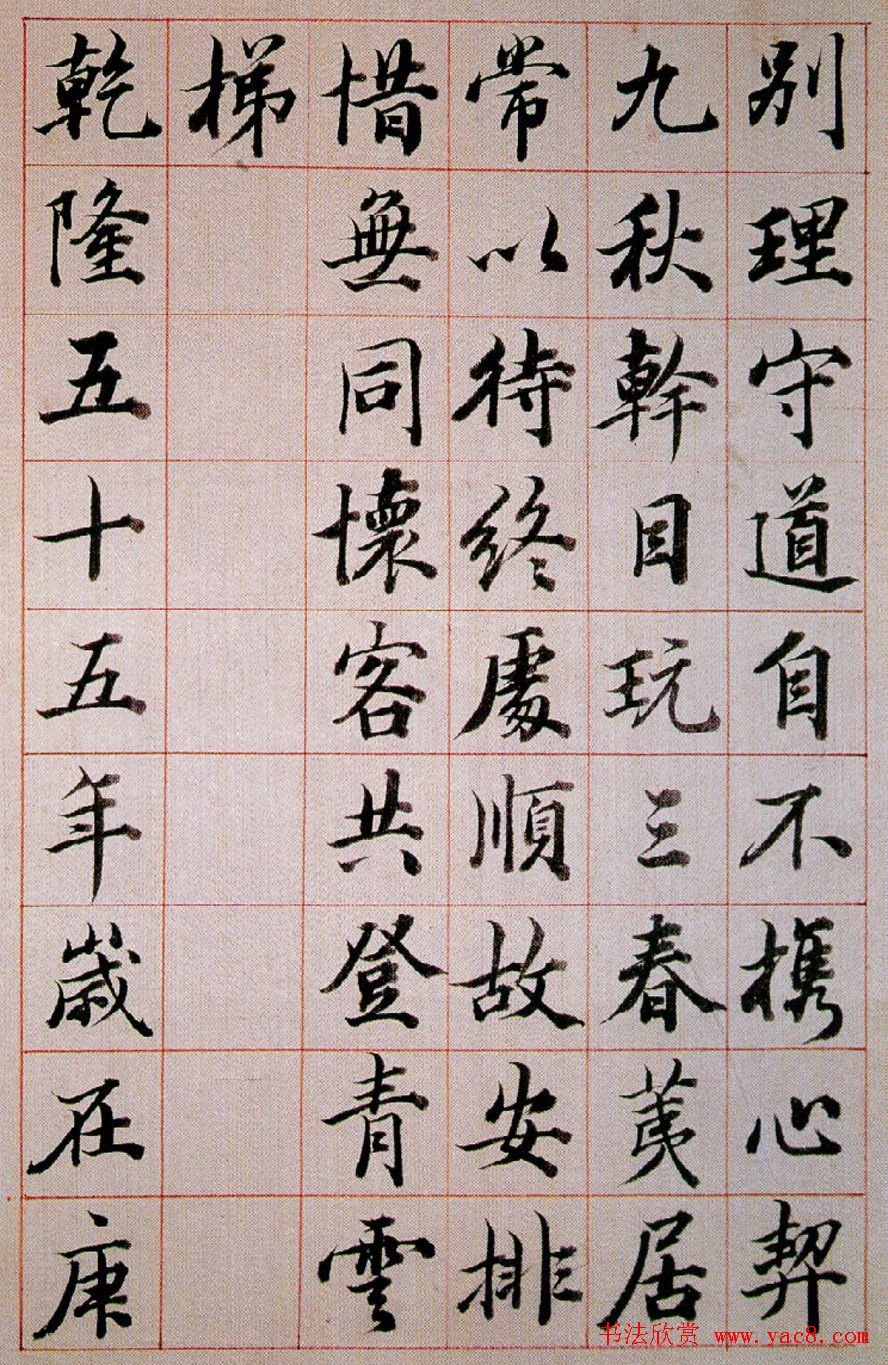 別理守道自不攜心契
九秋幹目玩三春荑居
常以待終處順故安排
惜無同懷客共登青雲
梯
乾隆五十五年歲在庚
书法欣赏 www.yac8.com